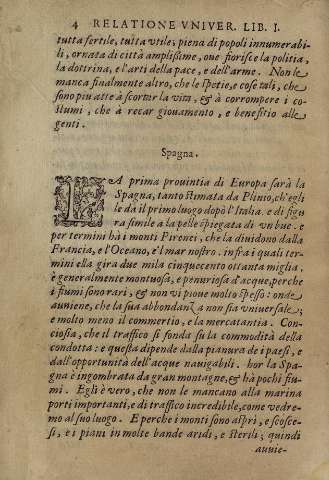 4 RELATIONE VNIVER. LIB. I.
tutta fertile, tutta vtile, piena di popoli innumerabi-
li, ornata di città amplißime, oue fiorisce la politia,
la dottrina, e l'arti della pace, e dell'arme. Non le
manca finalmente altro, che le spetie, e cose tali, che
sono piu atte à scortar la vita, & à corrompere i co-
stumi, che à recar giouamento, e benefitio alle
genti.
Spagna.
LA prima prouintia di Europa sarà la
Spagna, tanto stimata da Plinio, ch'egli
le da il primo luogo dopò l'Italia. e di figu
ra simile a la pelle spiegata di un bue. e
per termini hà i monti Pirenei, che la diuidono dalla
Francia, e l'Oceano, e'l mar nostro. infra i quali ter-
mini ella gira due mila cinquecento ottanta miglia.
è generalmente montuosa, e penuriosa d'acque, perche
i fiumi son rari, & non vi pioue molto speßo: onde
auuiene, che la sua abbondanza non sia vniuersale;
e molto meno il commertio, e la mercatantia. Con-
ciosia, che il traffico si fonda su la commodità della
condotta: e questa dipende dalla pianura de i paesi, e
dall'opportunità dell'acque nauigabili. hor la Spa-
gna è ingombrata da gran montagne, & hà pochi fiu-
mi. Egli è vero, che non le mancano alla marina
porti importanti, e di traffico incredibile, come vedre-
mo al suo luogo. E perche i monti sono aspri, e scosce-
si, e i piani in molte bande aridi, e sterili; quindi
auuie-